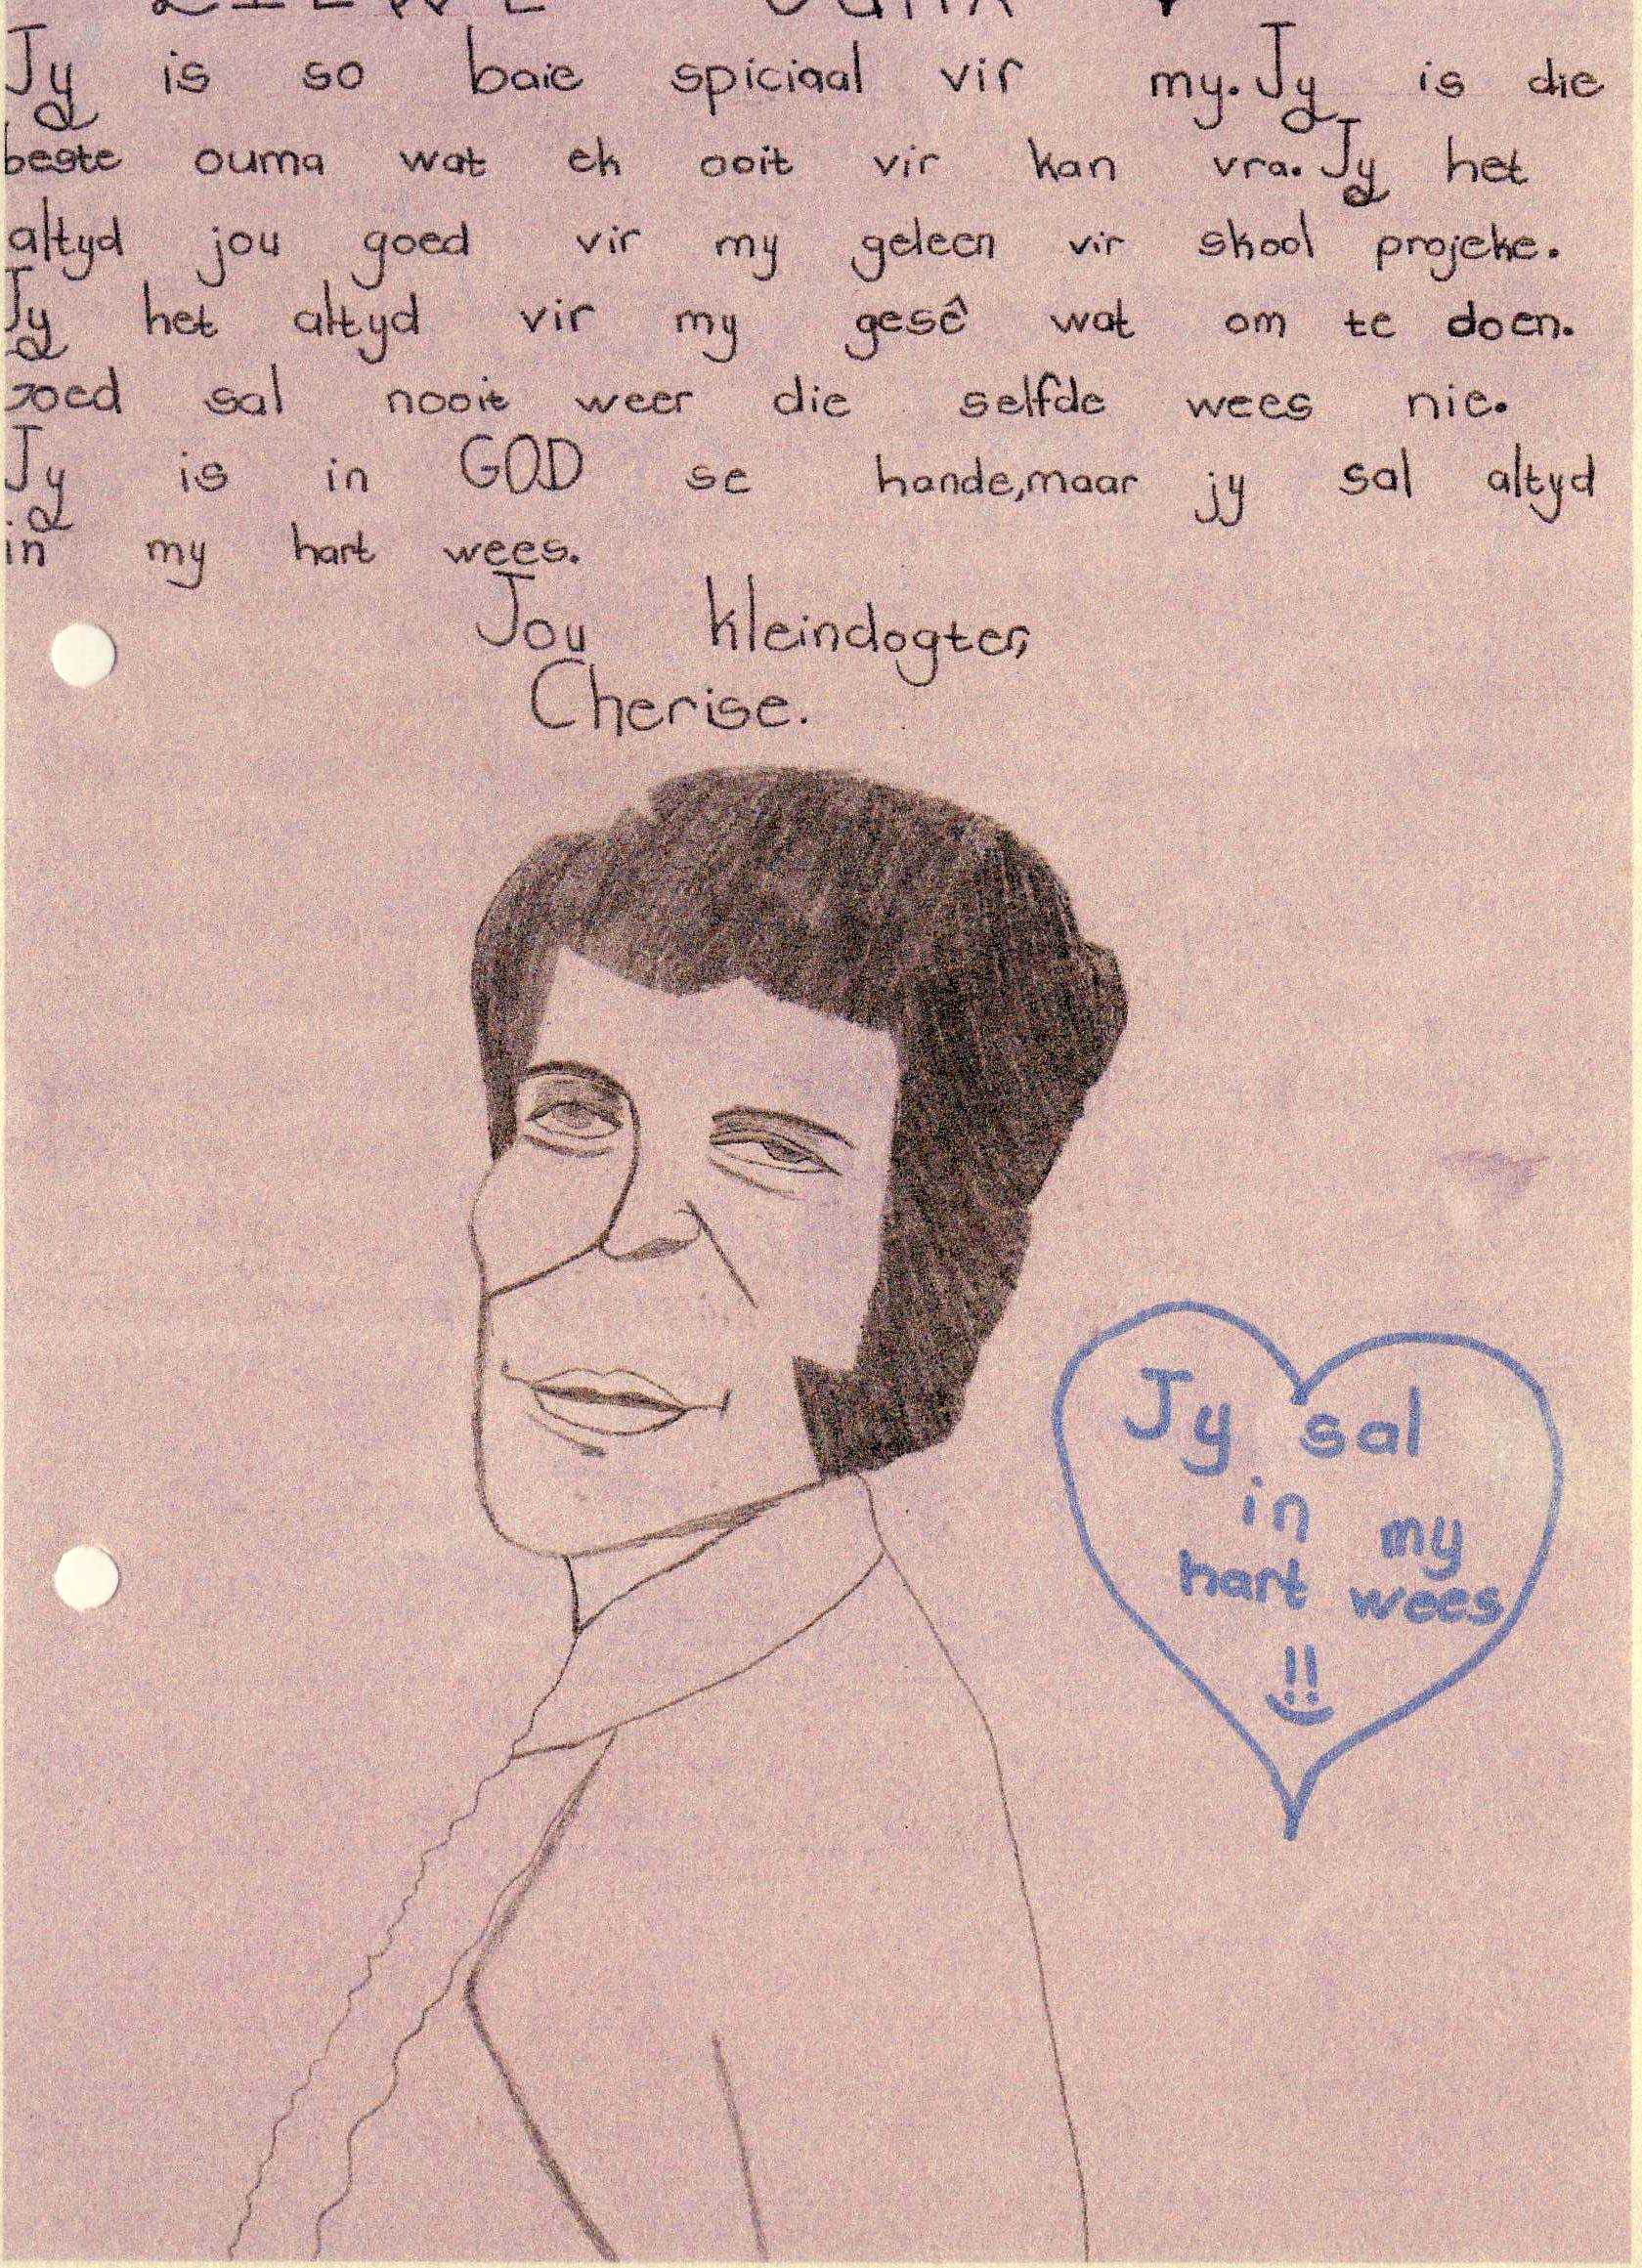 LIEWE OUMA
Jy is so baie spiciaal vir my. Jy is die
beste ouma wat ek ooit vir kan vra. Jy het
altyd jou goed vir my geleen vir skool projeke.
Jy het altyd vir my gesê wat om te doen.
goed sal nooit weer die selfde wees nie.
Jy is in GOD se hande, maar jy sal altyd
in my hart wees.
Jou kleindogter,
Cherise.
Jy sal
in my
hart wees
!!